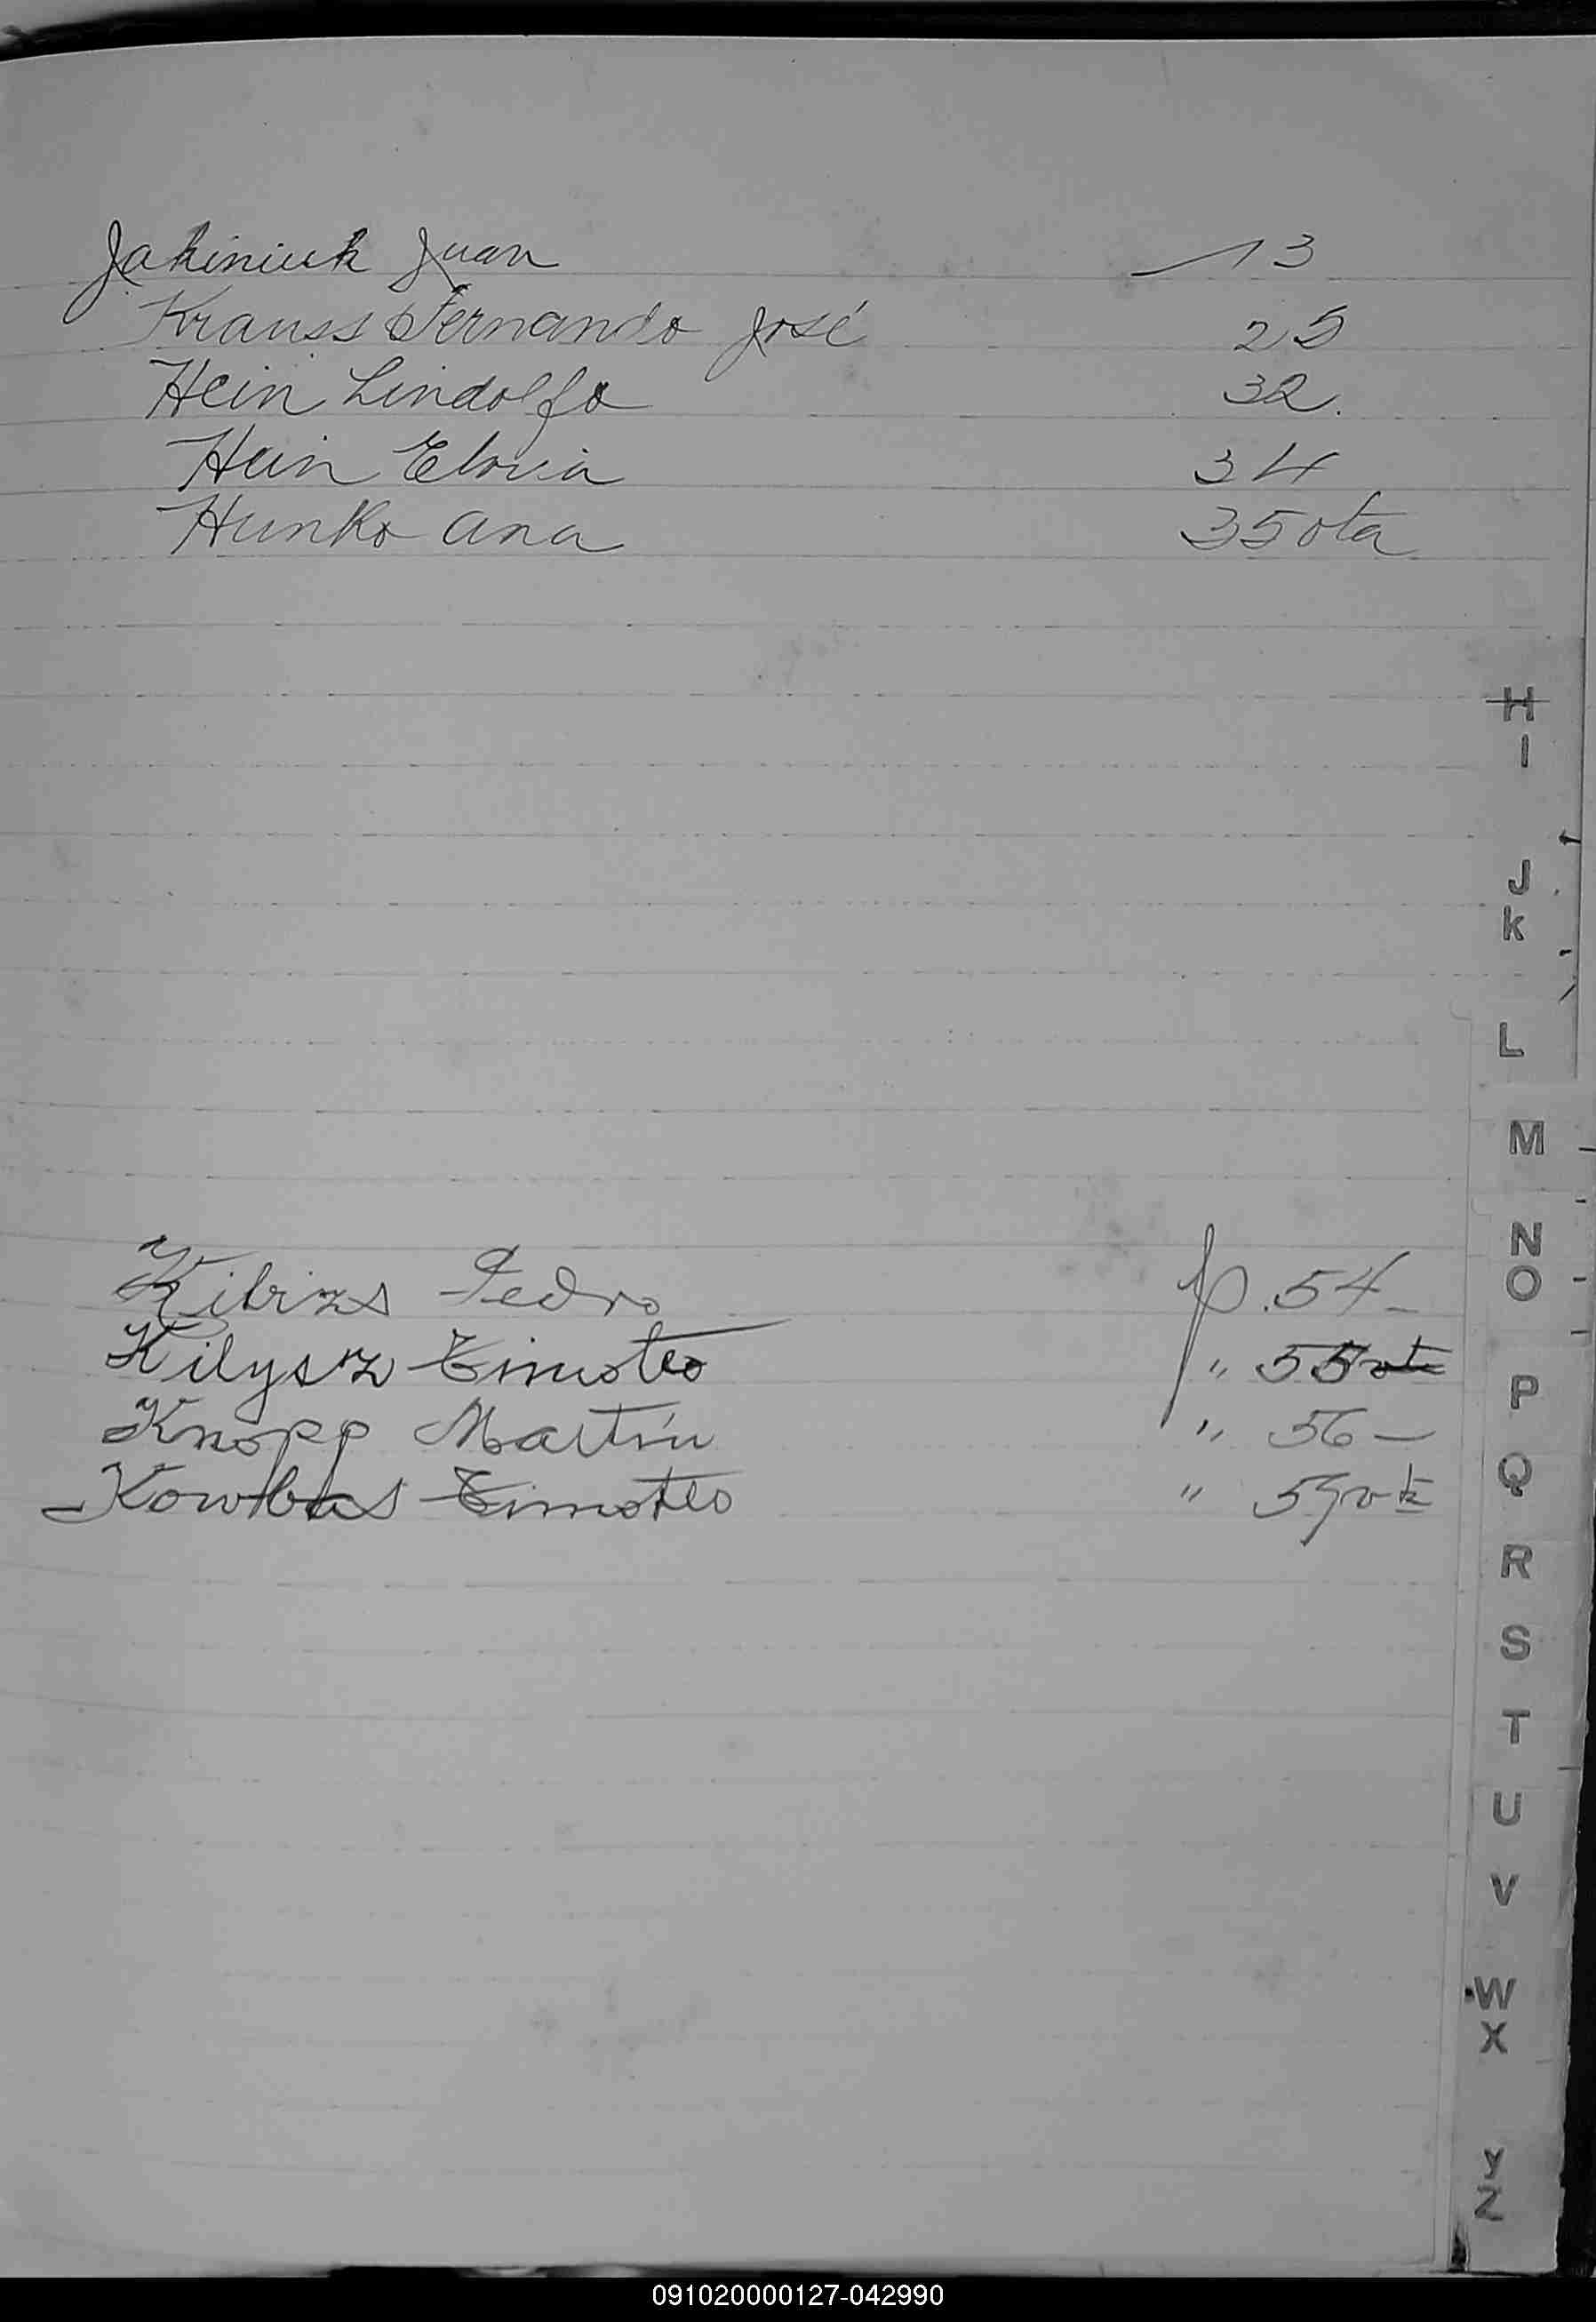 Jakiniuk Juan 13
Krauss Fernando José 25
Hein Lindolfo 32.
Hein Elvia 34
Hunko Ana 35 vta
Kibizs Pedro fo. 54-
Kilysz Timoteo " 55 vta
Knopp Martín " 56 -
Kowbas Timoteo " 59 vta
H
I
J
K
L
M
N
O
P
Q
R
S
T
U
V
W
X
Y
Z
091020000127-042990